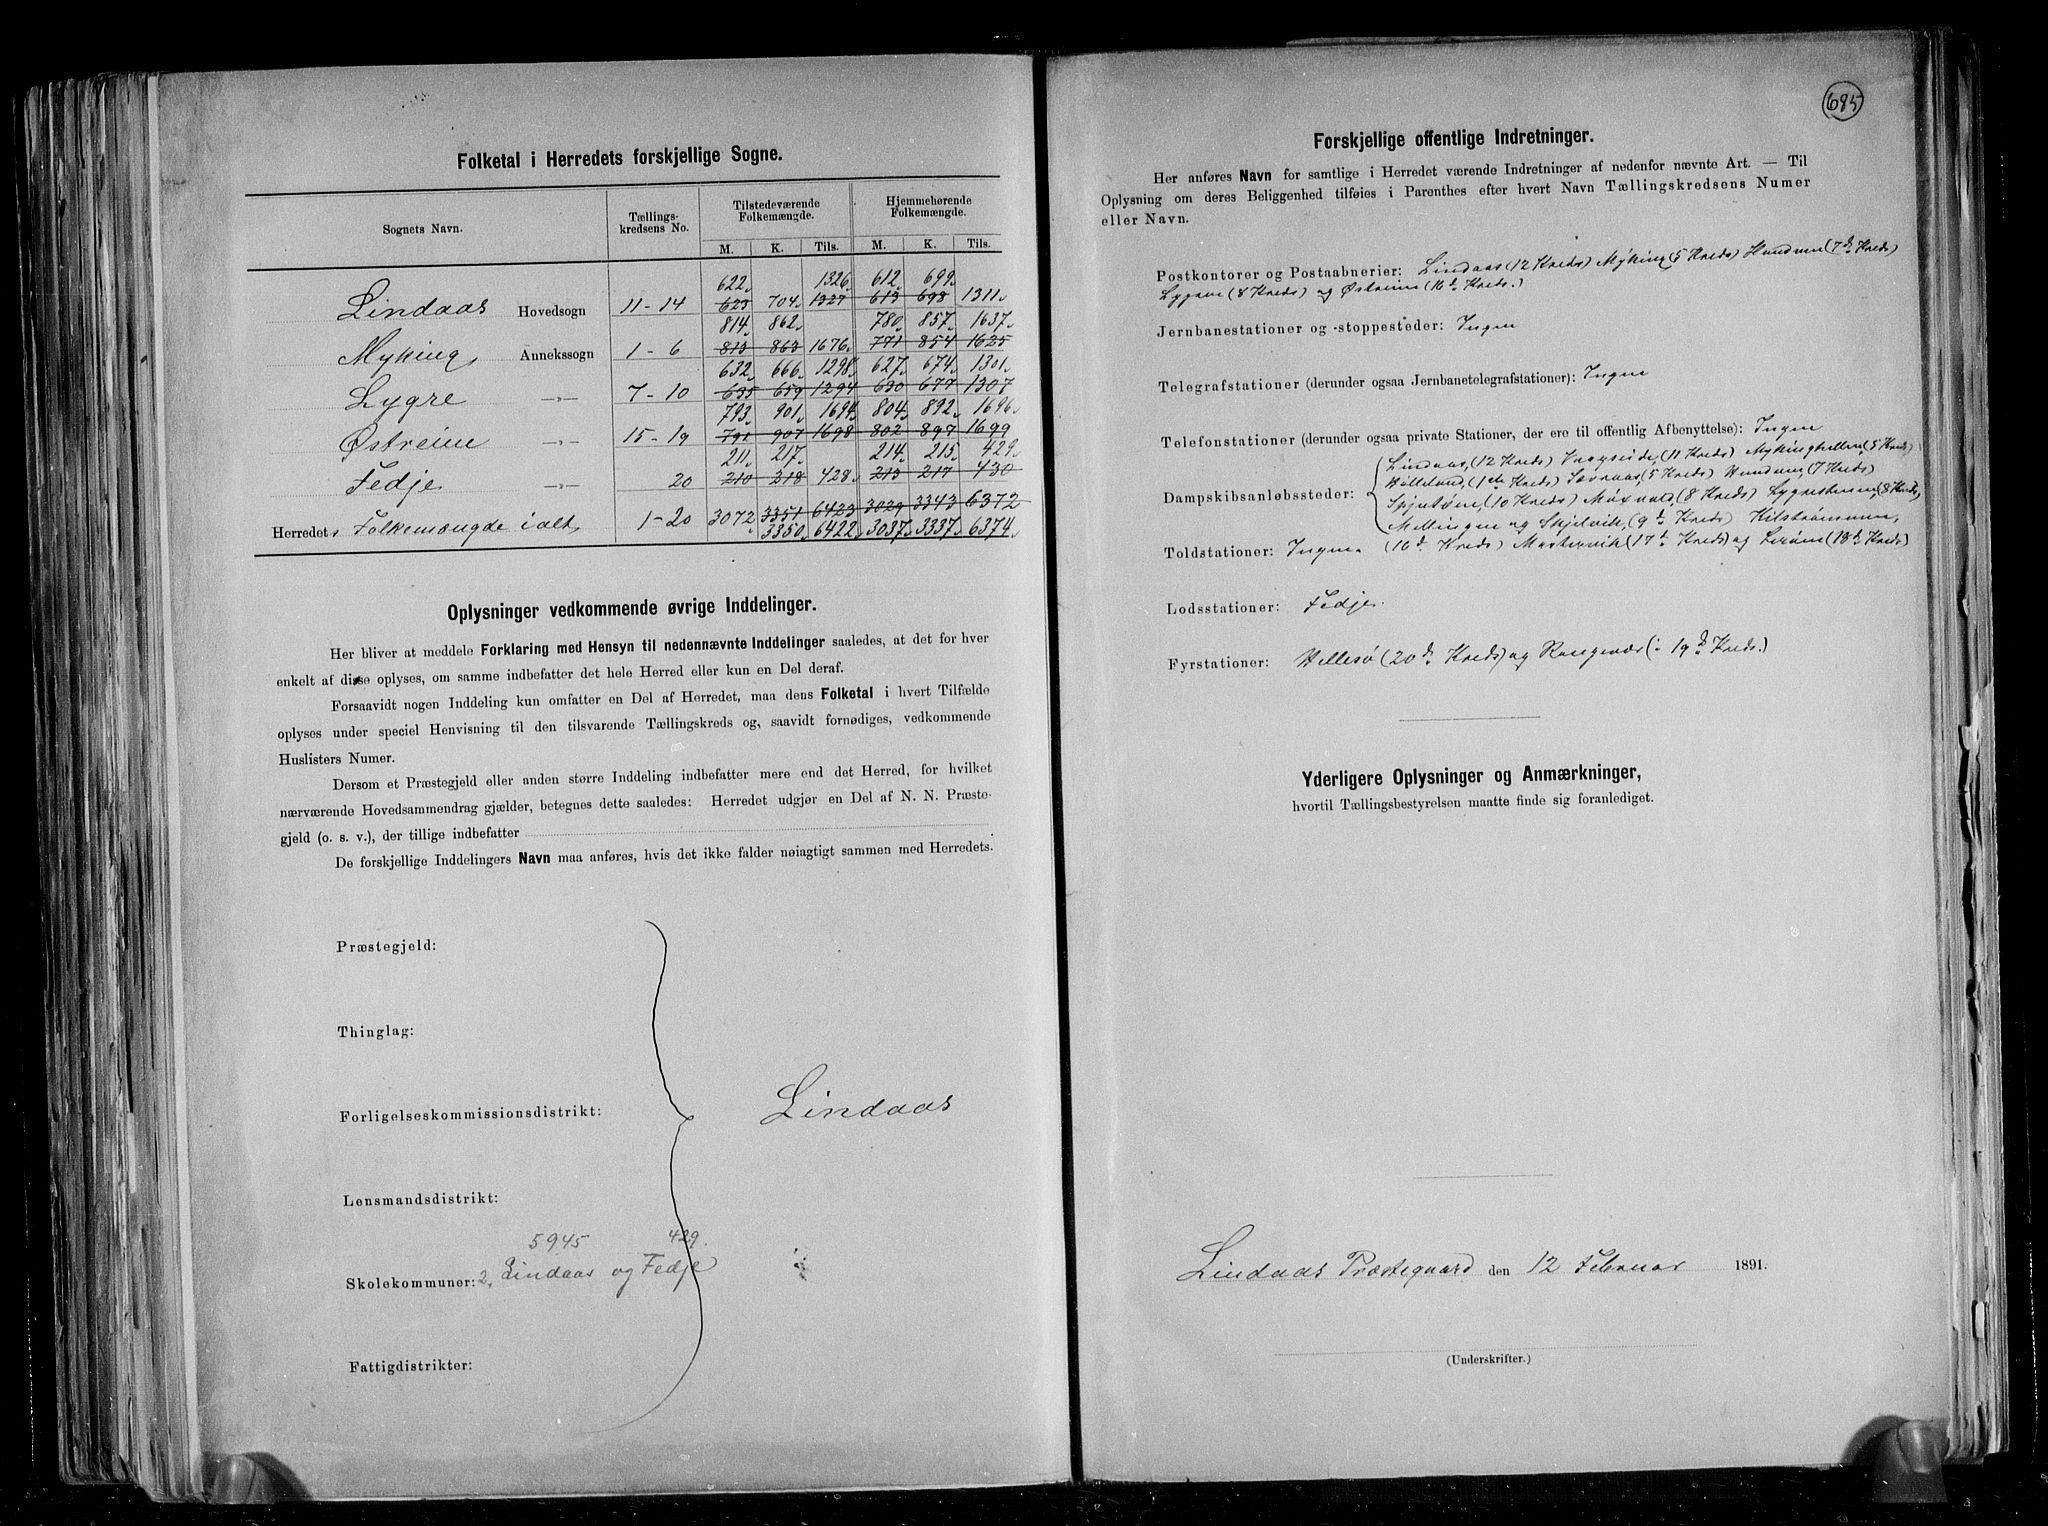 Folketal i Herredets forskjellige Sogne.
Sognets Navn. Tællings-kredsens No. Tilstedeværende Folkemængde. Hjemmehørende Folkemængde.
M. K. Tils. M. K. Tils.
622. 1326. 612. 699.
Lindaas Hovedsogn 11-14 623 704. 1327 613 698 1311.
814. 862. 780. 857. 1637.
Myking Annekssogn 1-6 813 863 1676. 771 854 1625
632. 666. 1298. 627. 674. 1301.
Lygre -„- 7-10 635 659 1294 630 677 1307
793. 901. 1694. 804. 892. 1696.
Østreim -„- 15-19 791 907 1698 802 897 1699
211. 217. 214. 215. 429.
Fedje -„- 20 210 218 428. 213 217 430
Herredets Folkemængde i alt 1-20 3072 3351 6423 3029 3343 6372
3350. 6422. 3037. 3337. 6374.
Oplysninger vedkommende øvrige Inddelinger.
Her bliver at meddele Forklaring med Hensyn til nedennævnte Inddelinger saaledes, at det for hver
enkelt af disse oplyses, om samme indbefatter det hele Herred eller kun en Del deraf.
Forsaavidt nogen Inddeling kun omfatter en Del af Herredet, maa dens Folketal i hvert Tilfælde
oplyses under speciel Henvisning til den tilsvarende Tællingskreds og, saavidt fornødiges, vedkommende
Huslisters Numer.
Dersom et Præstegjeld eller anden større Inddeling indbefatter mere end det Herred, for hvilket
nærværende Hovedsammendrag gjælder, betegnes dette saaledes: Herredet udgjør en Del af N. N. Præste-
gjeld (o. s. v.), der tillige indbefatter
De forskjellige Inddelingers Navn maa anføres, hvis det ikke falder nøiagtigt sammen med Herredets.
Præstegjeld:
Thinglag:
Forligelseskommissionsdistrikt: Lindaas
Lensmandsdistrikt:
5945 429.
Skolekommuner: 2, Lindaas og Fedje
Fattigdistrikter:
685
Forskjellige offentlige Indretninger.
Her anføres Navn for samtlige i Herredet værende Indretninger af nedenfor nævnte Art. — Til
Oplysning om deres Beliggenhed tilføies i Parenthes efter hvert Navn Tællingskredsens Numer
eller Navn.
Postkontorer og Postaabnerier: Lindaas (12 Kreds) Myking (5 Kreds) Hundven (7de Kreds)
Lygren (8 Kreds) og Østreim (16de Kreds.)
Jernbanestationer og -stoppesteder: Ingen
Telegrafstationer (derunder ogsaa Jernbanetelegrafstationer): Ingen
Telefonstationer (derunder ogsaa private Stationer, der ere til offentlig Afbenyttelse): Ingen
Lindaas, (12 Kreds) (11 Kreds) (5 Kreds)
Dampskibsanløbssteder: (1ste Kreds) (5 Kreds) Hundven, (7 Kreds)
(10 Kreds) (8 Kreds) (8 Kreds,
Mellingen og Skjelvik, (9de Kreds) Kilstrømmen,
Toldstationer: Ingen. (16de Kreds) Mastrevik (17de Kreds) og (18de Kreds)
Lodsstationer: Fedje.
Fyrstationer: Hellesø (20de Kreds) og (i 19de Kreds.)
Yderligere Oplysninger og Anmærkninger,
hvortil Tællingsbestyrelsen maatte finde sig foranlediget.
Lindaas Præstegaard den 12 Februar 1891.
(Underskrifter.)